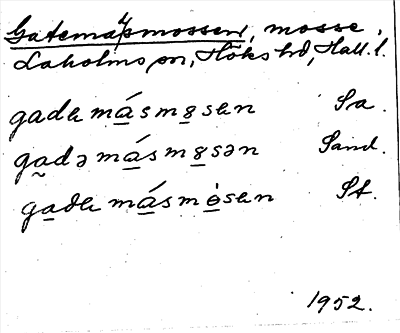 Gatemåsmossen, mosse,
Laholms sn, Höks hd, Hall. l.
gadɐ má̲sm8̲sɐn Sa.
ga̰də má̲sm8̲sən Sand.
ga̲ðɐ má̲smȯ̲sɐn St.
1952.